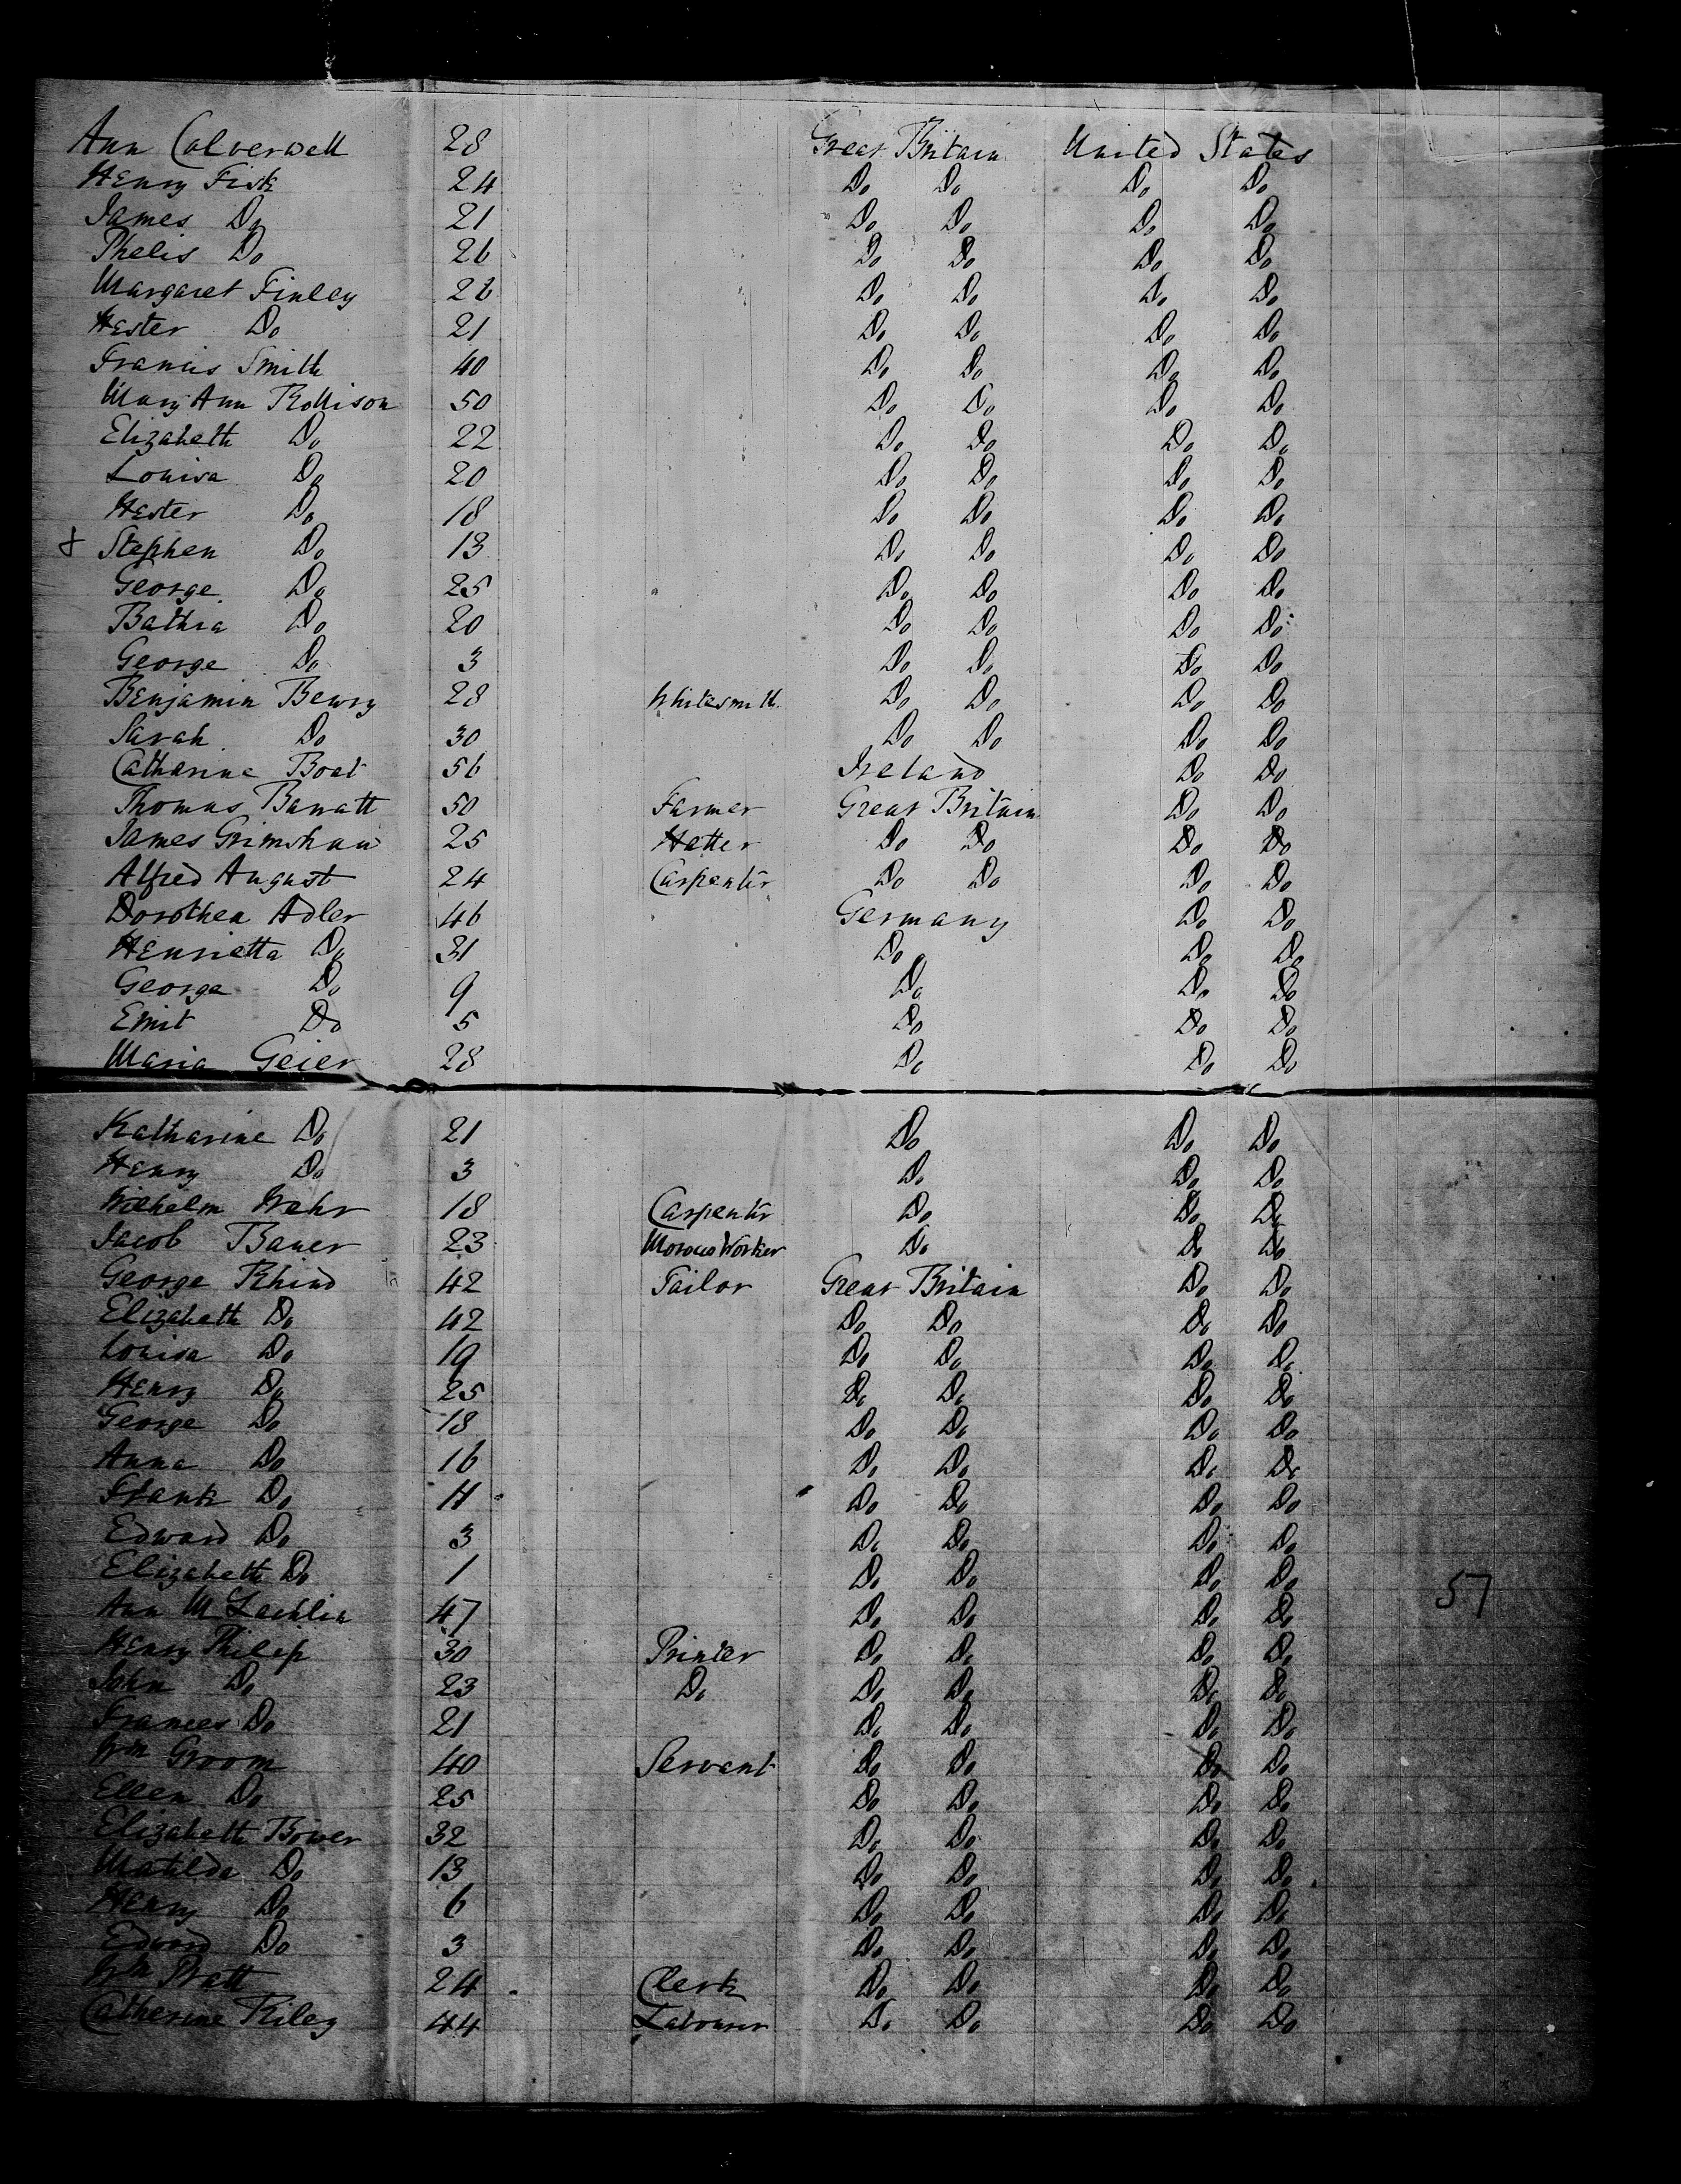 Ann Calverwell 28 Great Britain United States
Henry Fisk 24 Do Do Do Do
James Do 21 Do Do Do Do
Phelis Do 26 Do Do Do Do
Margaret Finley 28 Do Do Do Do
Hester Do 21 Do Do Do Do
Francis Smith 40 Do Do Do Do
Mary Ann Rollison 50 Do Do Do Do
Elizabeth Do 22 Do Do Do Do
Louisa Do 20 Do Do Do Do
Hester Do 18 Do Do Do Do
Stephen Do 13 Do Do Do Do
George Do 25 Do Do Do Do
Bathia Do 20 Do Do Do Do
George Do 3 Do Do Do Do
Benjamin Bewry 28 Whitesmith Do Do Do Do
Sarah Do 30 Do Do Do Do
Catharine Boat 56 Ireland Do Do
Thomas Barratt 50 Farmer Great Britain Do Do
James Grimshaw 25 Hatter Do Do Do Do
Alfred August 24 Carpenter Do Do Do Do
Dorothea Adler 46 Germany Do Do
Henrietta Do 31 Do Do Do
George Do 9 Do Do Do
Emit Do 5 Do Do Do
Maria Geier 28 Do Do Do
Katharine Do 21 Do Do Do
Henry Do 3 Do Do Do
Wilhelm Wehr 18 Carpenter Do Do Do
Jacob Bauer 23 Morocco Worker Do Do Do
George Rhind 42 Tailor Great Britain Do Do
Elizabeth Do 42 Do Do Do Do
Louisa Do 19 Do Do Do Do
Henry Do 25 Do Do Do Do
George Do 18 Do Do Do Do
Anna Do 16 Do Do Do Do
Frank Do 11 Do Do Do Do
Edward Do 3 Do Do Do Do
Elizabeth Do 1 Do Do Do Do 57
Ann McLachlin 47 Do Do Do Do
Henry Philip 30 Printer Do Do Do Do
John Do 23 Do Do Do Do Do
Frances Do 21 Do Do Do Do
Wm Groom 40 Servant Do Do Do Do
Ellen Do 25 Do Do Do Do
Elizabeth Bower 32 Do Do Do Do
Matilda Do 13 Do Do Do Do
Henry Do 6 Do Do Do Do
Edward Do 3 Do Do Do Do
Wm Pratt 24 Clerk Do Do Do Do
Catherine Riley 44 Labourer Do Do Do Do